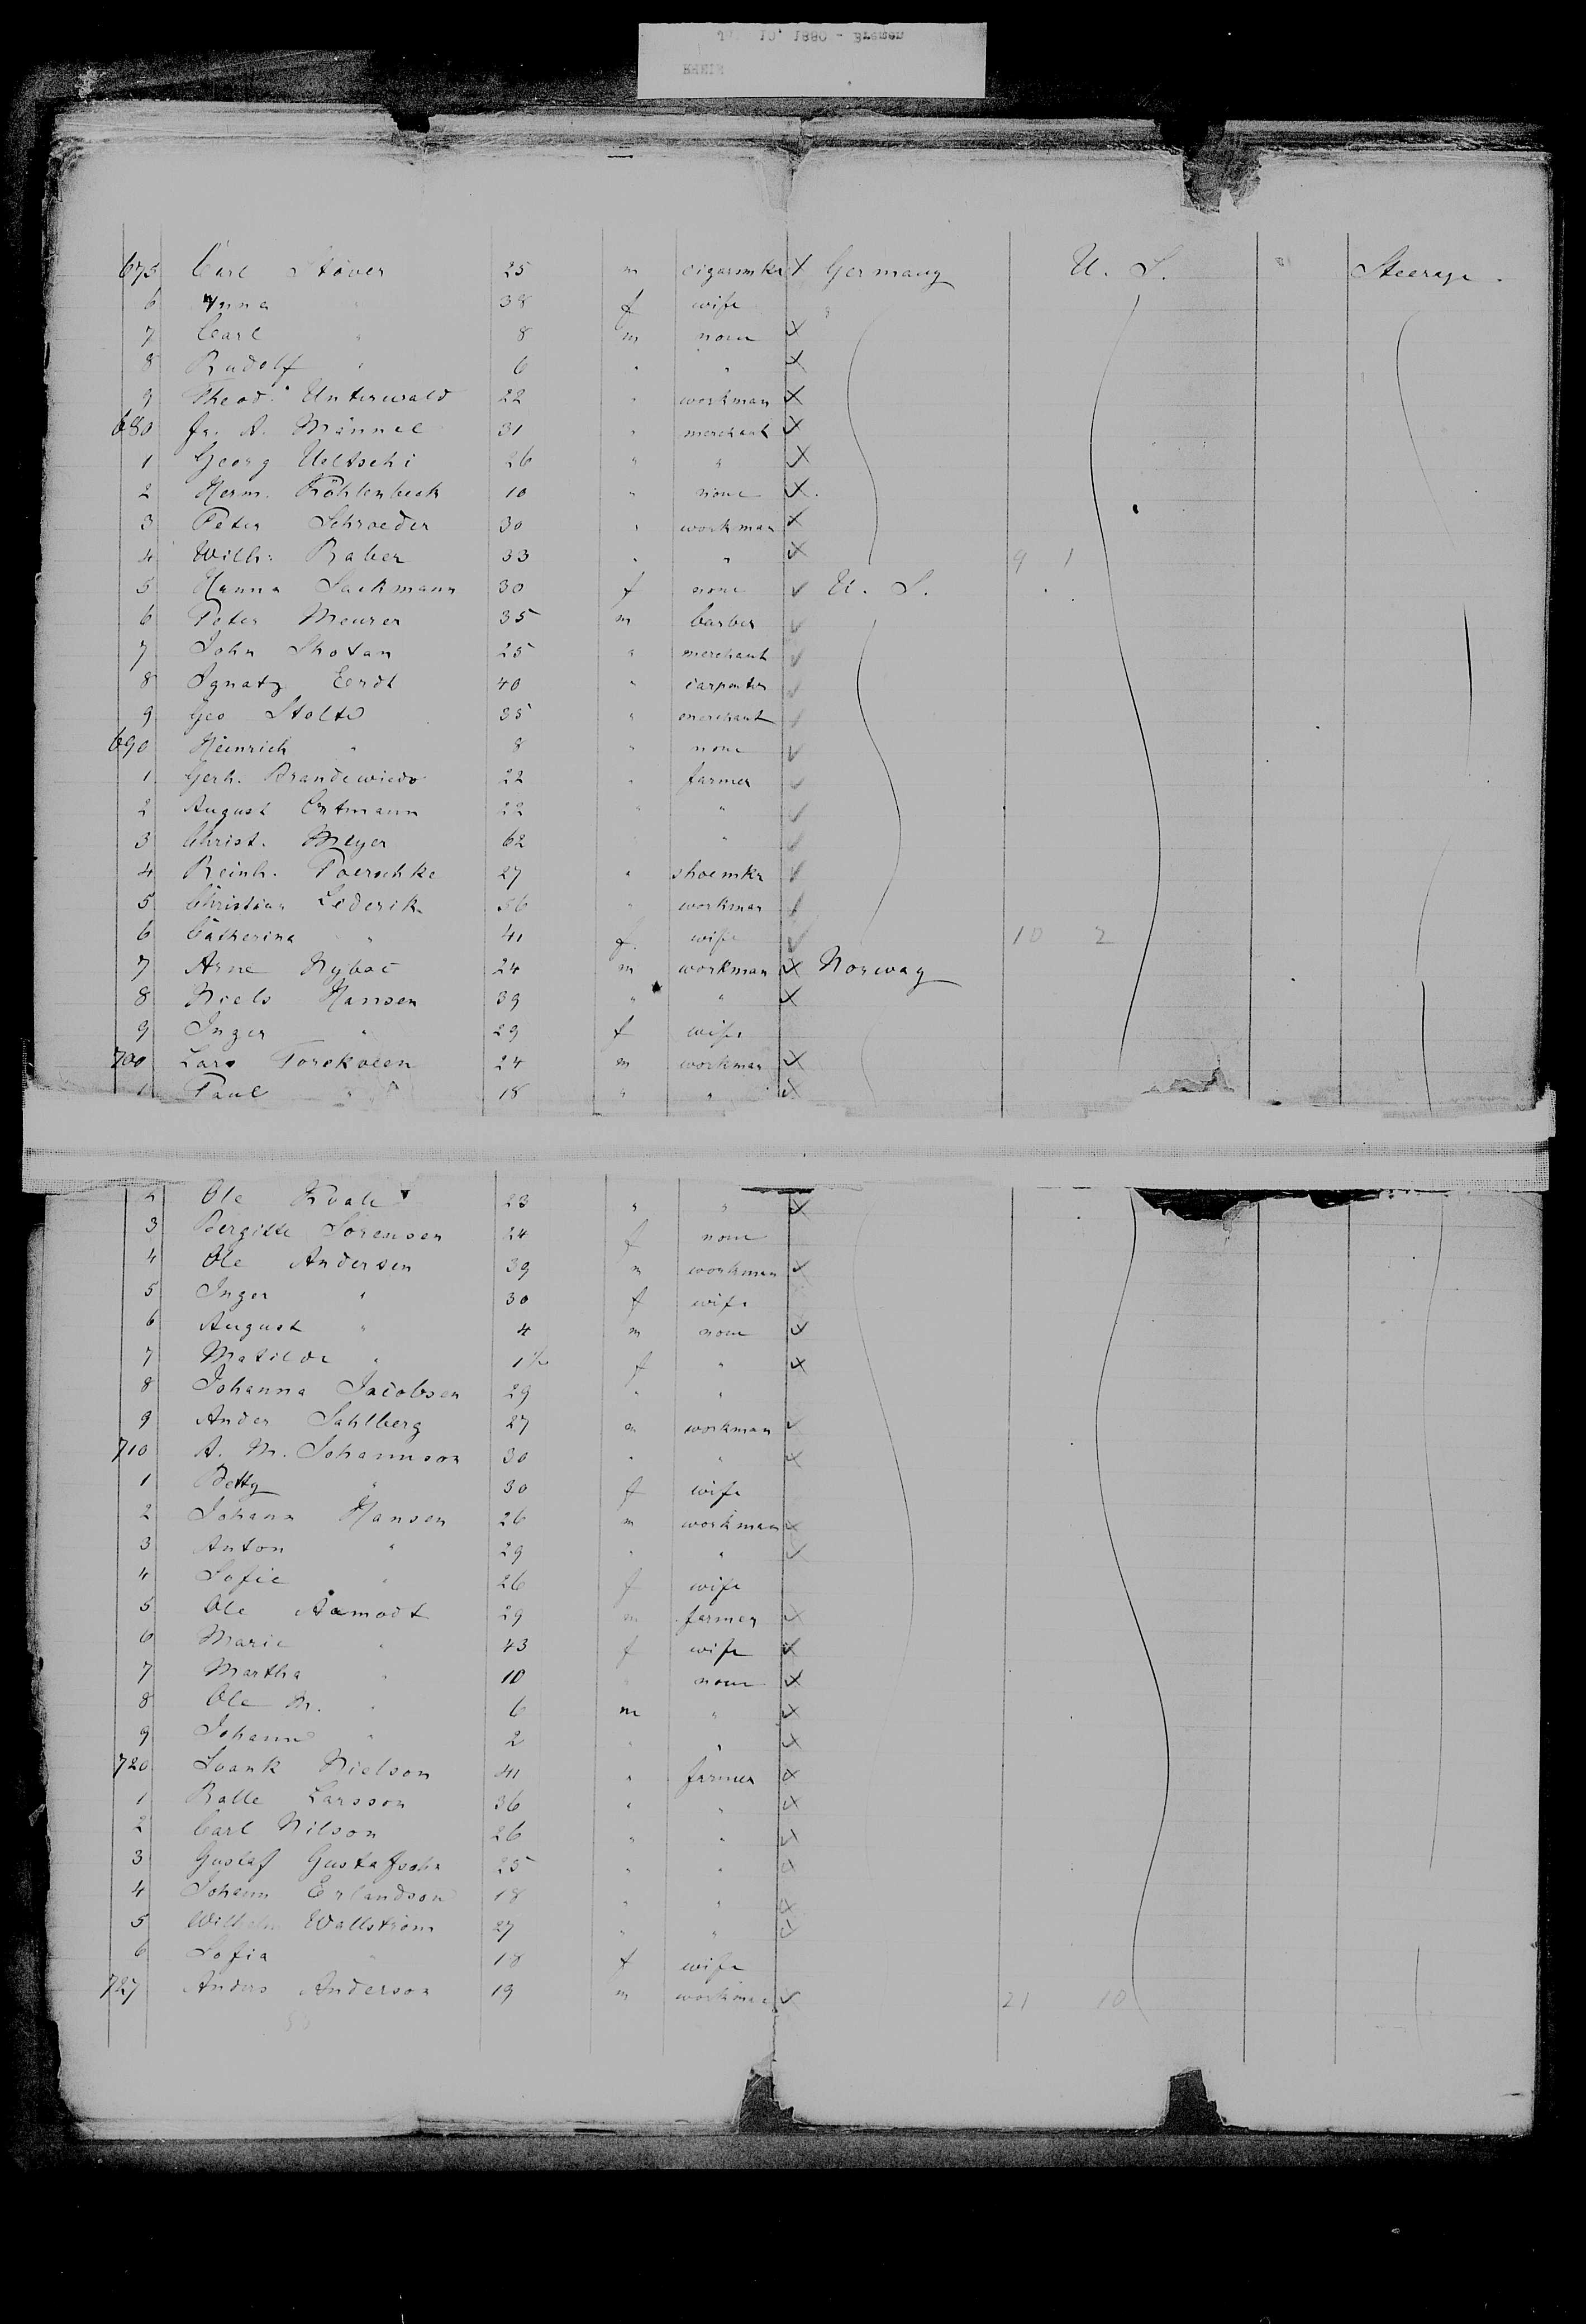 10' 1880 - Bremen
RHEIN
675 Carl Stöver 25 m cigarmkr X Germany U. S. Steerage.
6 Anna " 38 f wife "
7 Carl " 8 m none X
8 Rudolf " 6 " " X
9 Theod. Unterwald 22 " workman X
680 Fr. A. Männel 31 " merchant X
1 Georg Ueltschi 26 " " X
2 Herm. Köhlenbeck 10 " none X
3 Peter Schroeder 30 " workman X
4 Wilh. Raber 33 " " X 9 1
5 Hanna Sackmann 30 f none ✓ U. S.
6 Peter Meurer 35 m barber ✓
7 John Shotan 25 " merchant ✓
8 Ignatz Eerdt 40 " carpenter ✓
9 Geo Stolte 35 " merchant ✓
690 Heinrich " 8 " none ✓
1 Gerh. Brandewiede 22 " farmer ✓
2 August Ortmann 22 " " ✓
3 Christ. Meyer 62 " " ✓
4 Reinh. Poerschke 27 " shoemkr ✓
5 Christian Lederik 56 " workman ✓
6 Catherina " 41 f. wife ✓ 10 2
7 Arne Nyboe 24 m workman X Norway
8 Niels Hansen 39 " " X
9 Inger " 29 f wife
700 Lars Torekoeen 24 m workman X
1 Paul " 18 " " X
2 Ole Kvale 23 " " X
3 Bergitte Sorensen 24 f none
4 Ole Andersen 39 m workman X
5 Inger " 30 f wife
6 August " 4 m none X
7 Matilde " 1½ f " X
8 Johanna Jacobsen 29 " "
9 Ander Sahlberg 27 m workman ✓
710 A. M. Johannson 30 " " X
1 Betty " 30 f wife
2 Johann Hansen 26 m workman X
3 Anton " 29 " " X
4 Sofie " 26 f wife
5 Ole Aamodt 29 m farmer X
6 Marie " 43 f wife X
7 Martha " 10 " none X
8 Ole M. " 6 m " X
9 Johann " 2 " " X
720 Svank Nielson 41 " farmer X
1 Balle Larsson 36 " " X
2 Carl Nilson 26 " " X
3 Gustaf Gustafsohn 25 " " X
4 Johann Erlandson 18 " " X
5 Wilhelm Wallstrom 27 " " X
6 Sofia " 18 f wife
727 Anders Anderson 19 m workman X 21 10